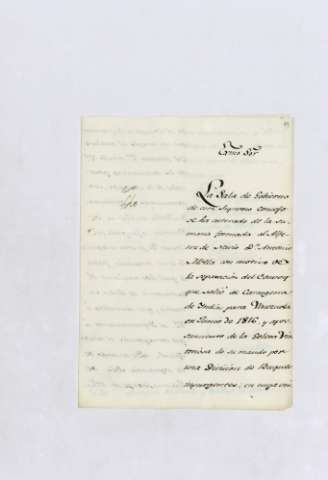 Exmo Sor
La Sala de Gobierno
de este Supremo Consejo
se ha enterado de la su-
maria formada al Alfe-
rez de Navio Dn Antonio
Mella con motivo de
la separacion del Comboy
que salió de Cartagena
de Indias para Venezuela
en Junio de 1816, y apre-
samiento de la Goleta
de su mando por
una Division de Buques
insurgentes; en cuya